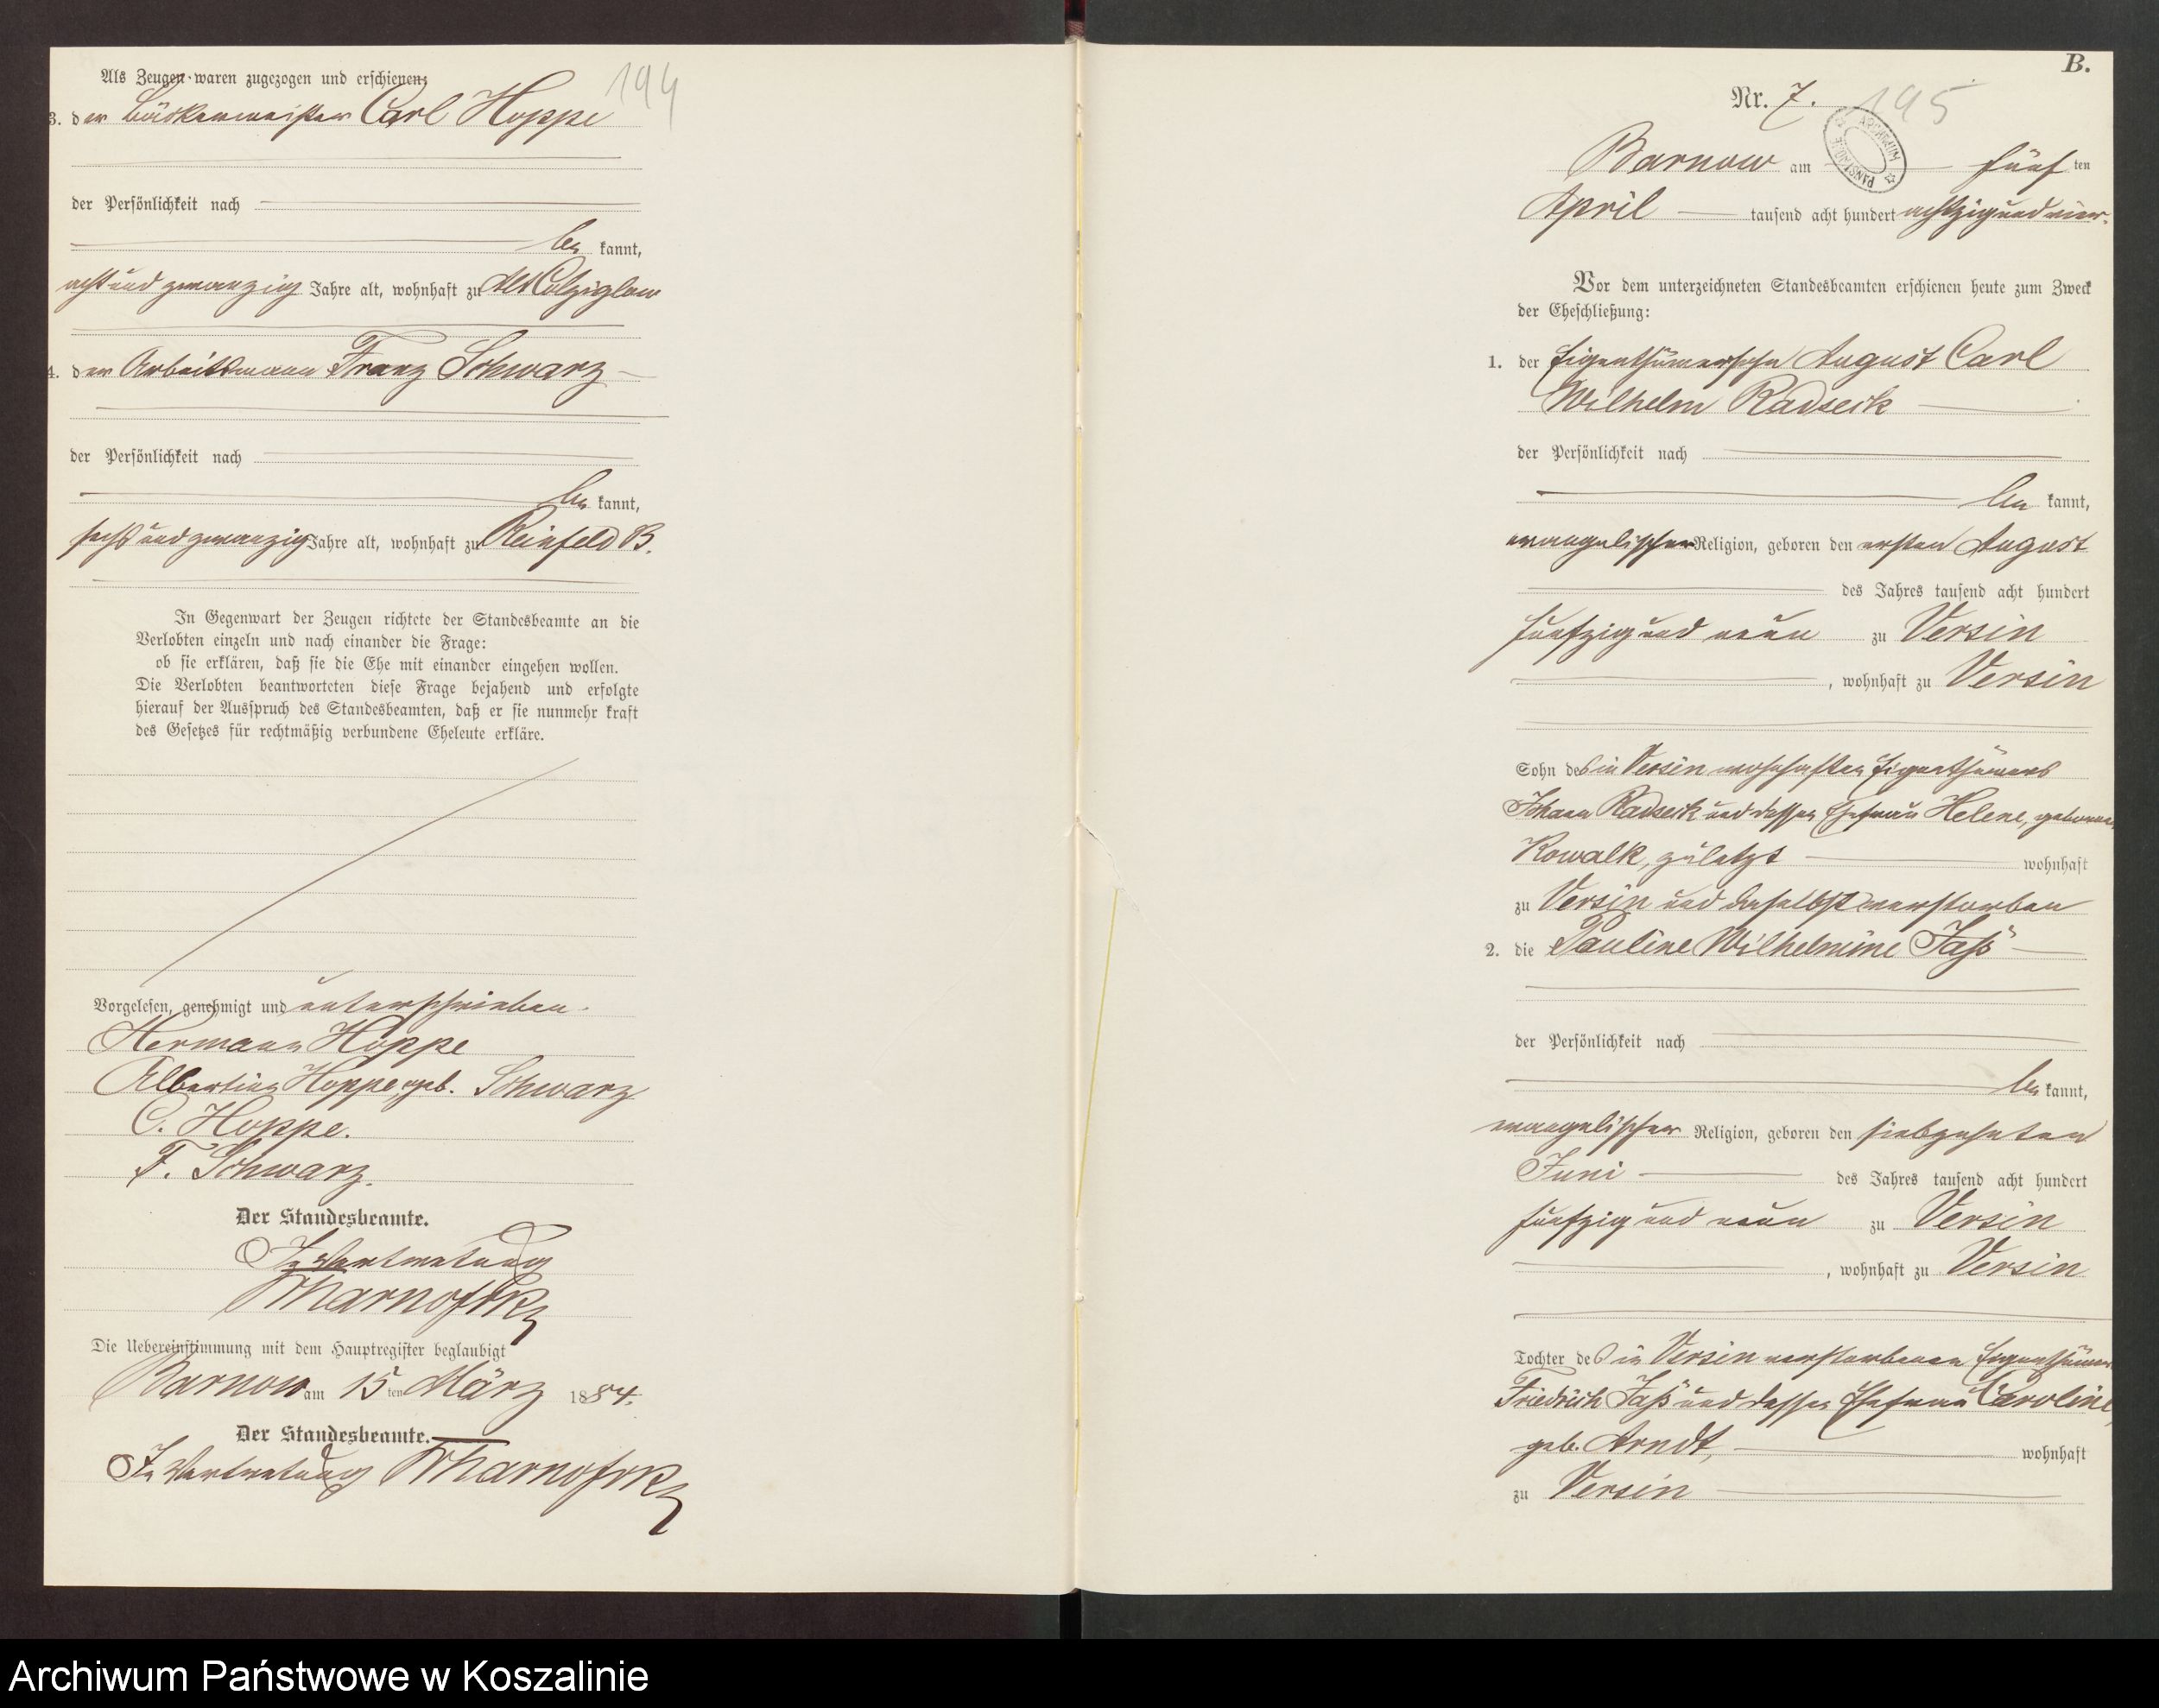 194
Als Zeugen waren zugezogen und erschienen:
3. der Bäckermeister Carl Hoppe
der Persönlichkeit nach
be kannt,
acht und zwanzig Jahre alt, wohnhaft zu Alt Colziglow
4. der Arbeitsmann Franz Schwarz
der Persönlichkeit nach
be kannt,
sechs und zwanzig Jahre alt, wohnhaft zu Reinfeld B.
In Gegenwart der Zeugen richtete der Standesbeamte an die
Verlobten einzeln und nach einander die Frage:
ob sie erklären, daß sie die Ehe mit einander eingehen wollen.
Die Verlobten beantworteten diese Frage bejahend und erfolgte
hierauf der Ausspruch des Standesbeamten, daß er sie nunmehr kraft
des Gesetzes für rechtmäßig verbundene Eheleute erkläre.
Vorgelesen, genehmigt und unterschrieben.
Hermann Hoppe
Albertine Hoppe, geb. Schwarz
C. Hoppe.
F. Schwarz.
Der Standesbeamte.
In Vertretung
Die Uebereinstimmung mit dem Hauptregister beglaubigt
Barnow am 15 ten März 1884.
Der Standesbeamte.
In Vertretung
B.
Nr. 7.
195
ARCHIWUM PAŃSTWOWE
Barnow am fünf ten
April tausend acht hundert achtzig und vier.
Vor dem unterzeichneten Standesbeamten erschienen heute zum Zweck
der Eheschließung:
1. der Eigenthümersohn August Carl
Wilhelm Radseck
der Persönlichkeit nach
be kannt,
evangelischer Religion, geboren den ersten August
des Jahres tausend acht hundert
fünfzig und neun zu Versin
, wohnhaft zu Versin
Sohn des in Versin wohnhaften Eigenthümers
Johann Radseck und dessen Ehefrau Helene, geborenen
Kowalk, zuletzt wohnhaft
zu Versin und daselbst verstorben
2. die Pauline Wilhelmine Jaß
der Persönlichkeit nach
be kannt,
evangelischer Religion, geboren den siebzehnten
Juni des Jahres tausend acht hundert
fünfzig und neun zu Versin
, wohnhaft zu Versin
Tochter des in Versin verstorbenen Eigenthümers
Friedrich Jaß und dessen Ehefrau Caroline,
geb. Arndt, wohnhaft
zu Versin
Archiwum Państwowe w Koszalinie